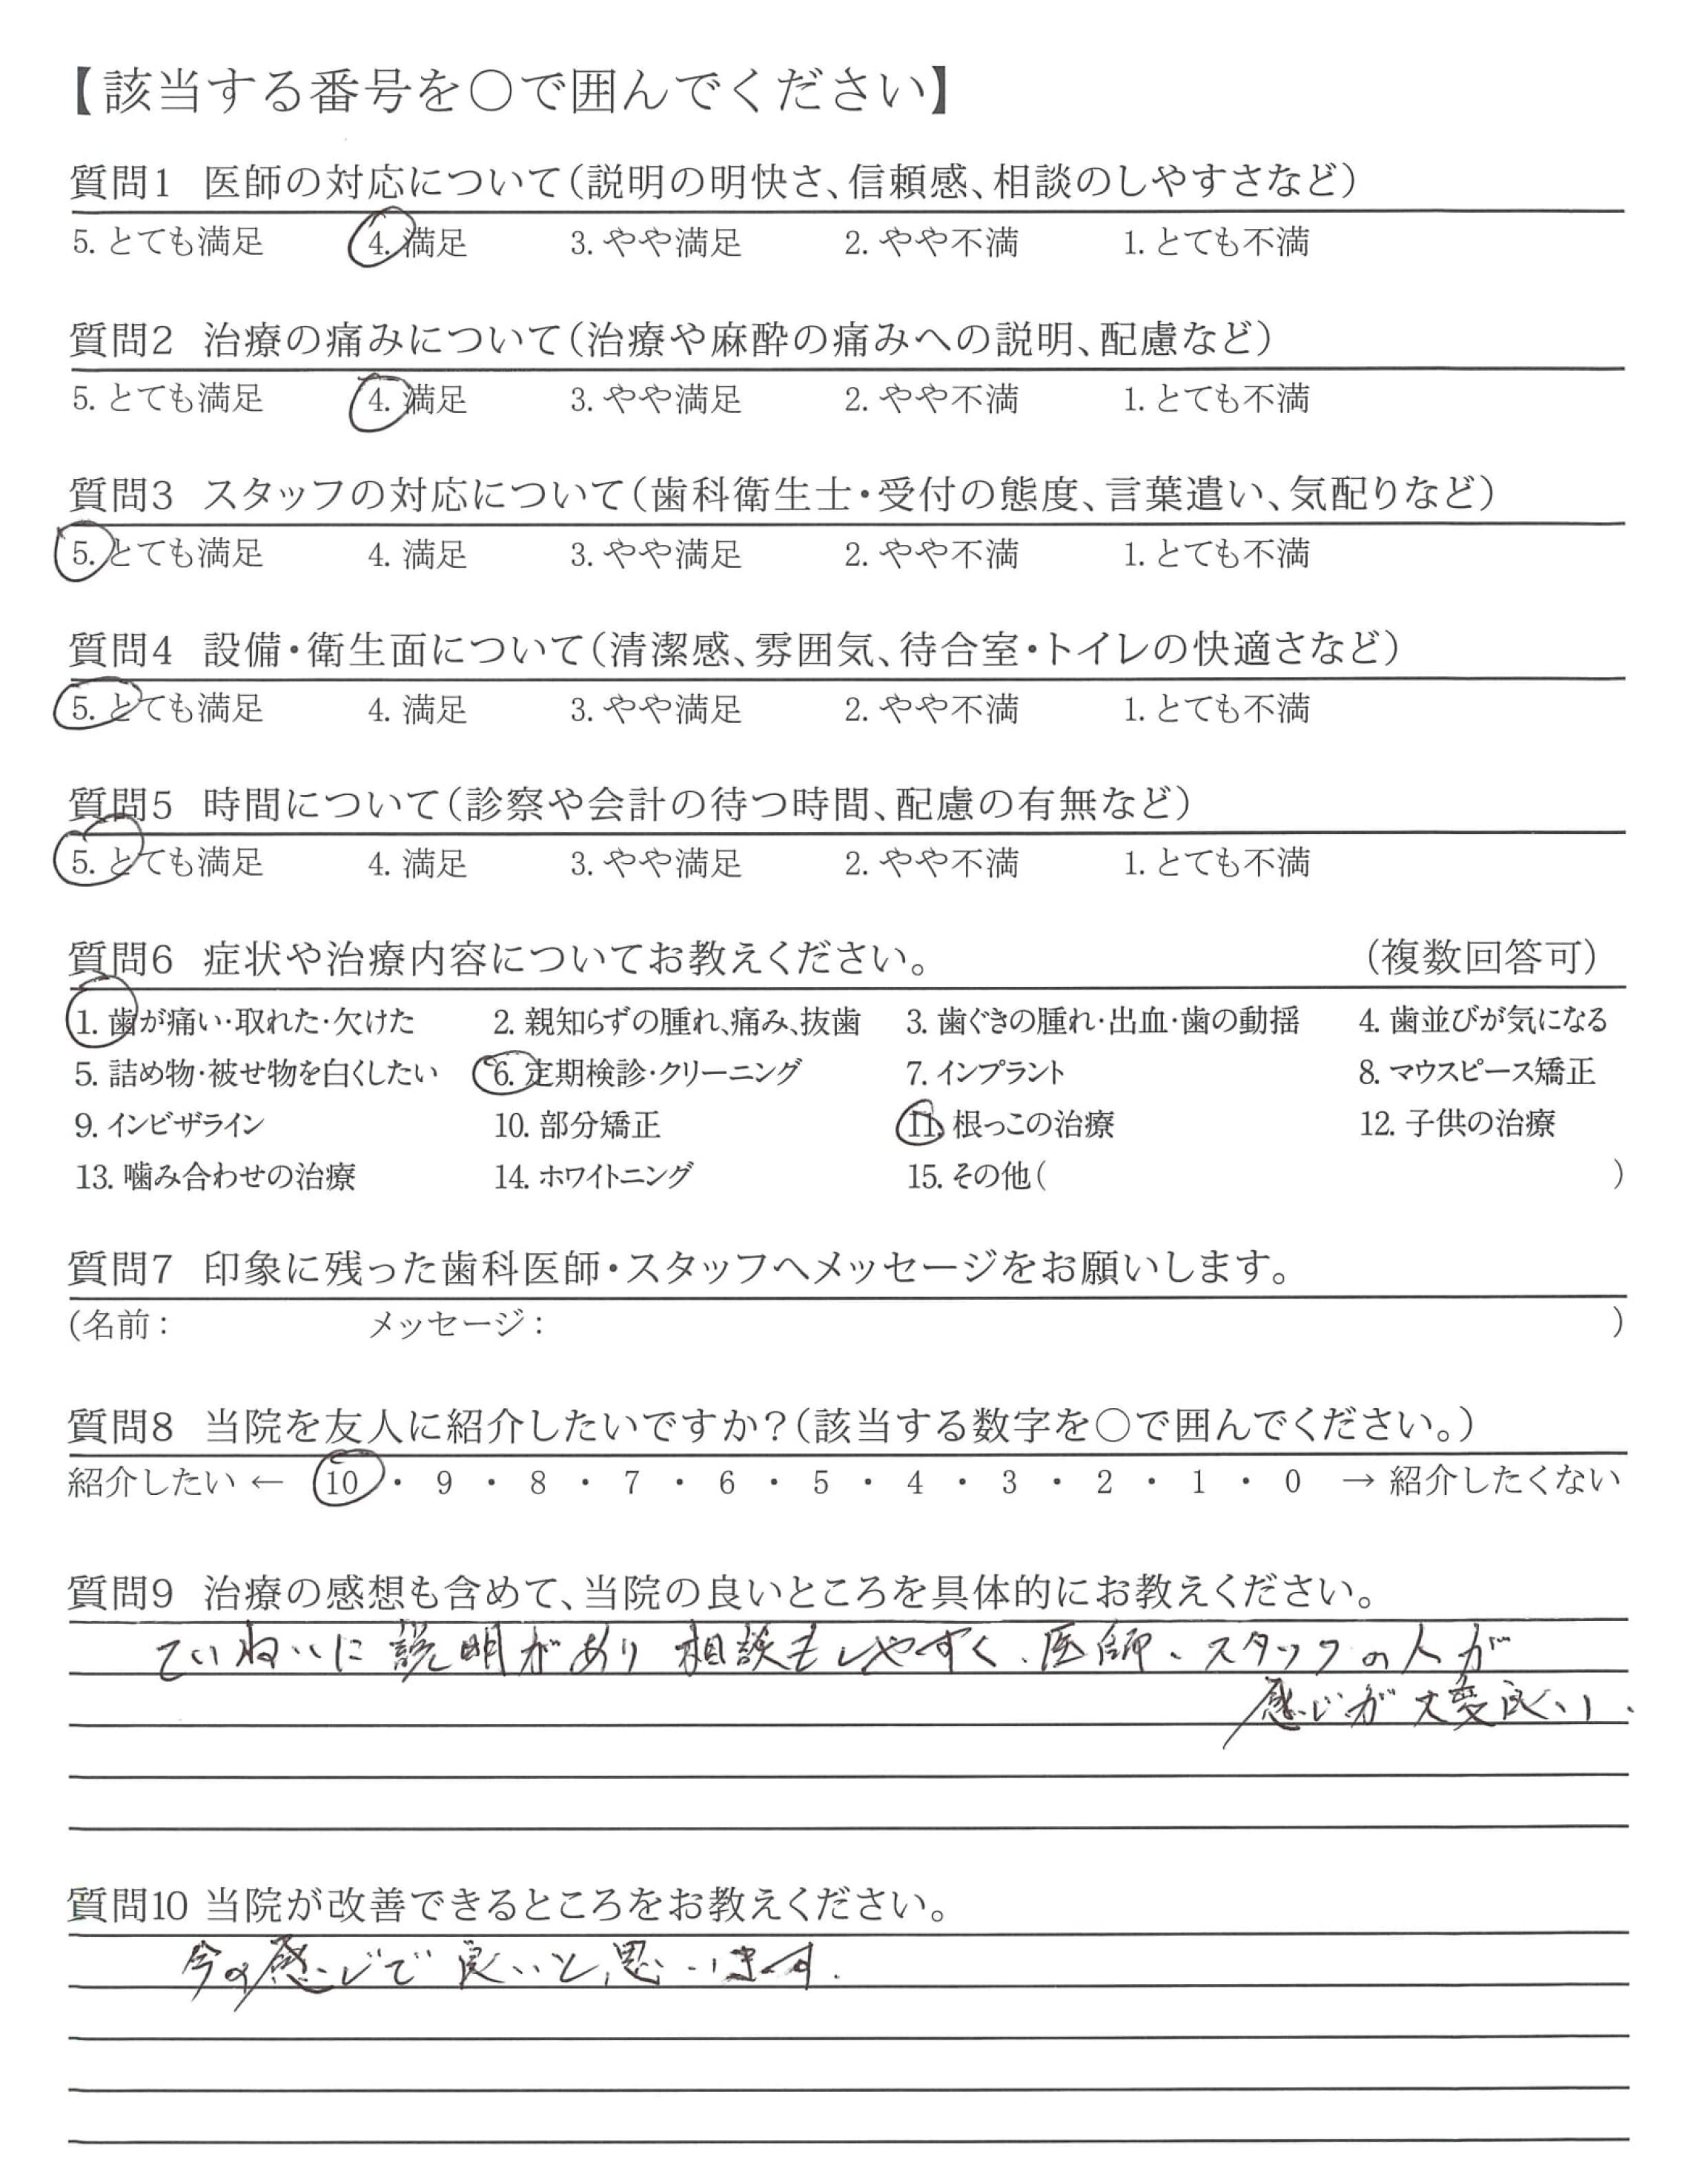 【該当する番号を〇で囲んでください】
質問1 医師の対応について(説明の明快さ、信頼感、相談のしやすさなど)
5. とても満足 4. 満足 3. やや満足 2. やや不満 1. とても不満
質問2 治療の痛みについて(治療や麻酔の痛みへの説明、配慮など)
5. とても満足 4. 満足 3. やや満足 2. やや不満 1. とても不満
質問3 スタッフの対応について(歯科衛生士・受付の態度、言葉遣い、気配りなど)
5. とても満足 4. 満足 3. やや満足 2. やや不満 1. とても不満
質問4 設備・衛生面について(清潔感、雰囲気、待合室・トイレの快適さなど)
5. とても満足 4. 満足 3. やや満足 2. やや不満 1. とても不満
質問5 時間について(診察や会計の待つ時間、配慮の有無など)
5. とても満足 4. 満足 3. やや満足 2. やや不満 1. とても不満
質問6 症状や治療内容についてお教えください。 (複数回答可)
1. 歯が痛い・取れた・欠けた 2. 親知らずの腫れ、痛み、抜歯 3. 歯ぐきの腫れ・出血・歯の動揺 4. 歯並びが気になる
5. 詰め物・被せ物を白くしたい 6. 定期検診・クリーニング 7. インプラント 8. マウスピース矯正
9. インビザライン 10. 部分矯正 11. 根っこの治療 12. 子供の治療
13. 噛み合わせの治療 14. ホワイトニング 15. その他( )
質問7 印象に残った歯科医師・スタッフへメッセージをお願いします。
(名前: メッセージ: )
質問8 当院を友人に紹介したいですか?(該当する数字を〇で囲んでください。)
紹介したい ← 10 ・ 9 ・ 8 ・ 7 ・ 6 ・ 5 ・ 4 ・ 3 ・ 2 ・ 1 ・ 0 → 紹介したくない
質問9 治療の感想も含めて、当院の良いところを具体的にお教えください。
ていねいに説明があり相談もしやすく、医師、スタッフの人が
感じが大変良い、
質問10 当院が改善できるところをお教えください。
今の感じで良いと思います.